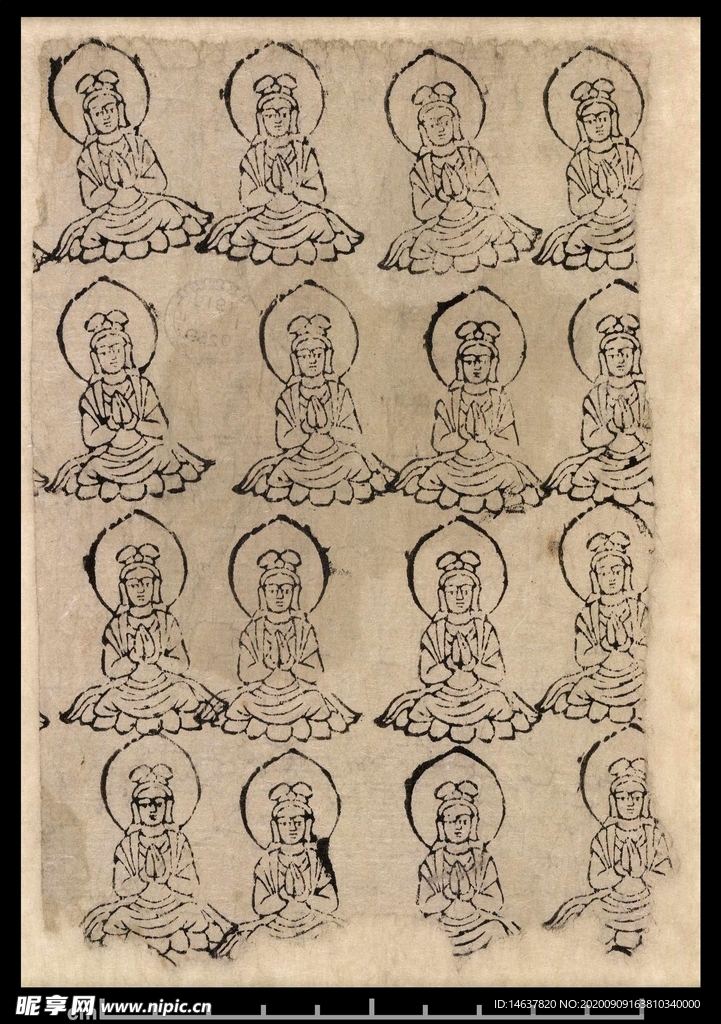 昵享网 www.nipic.cn
ID:14637820 NO:20200909163810340000
cm